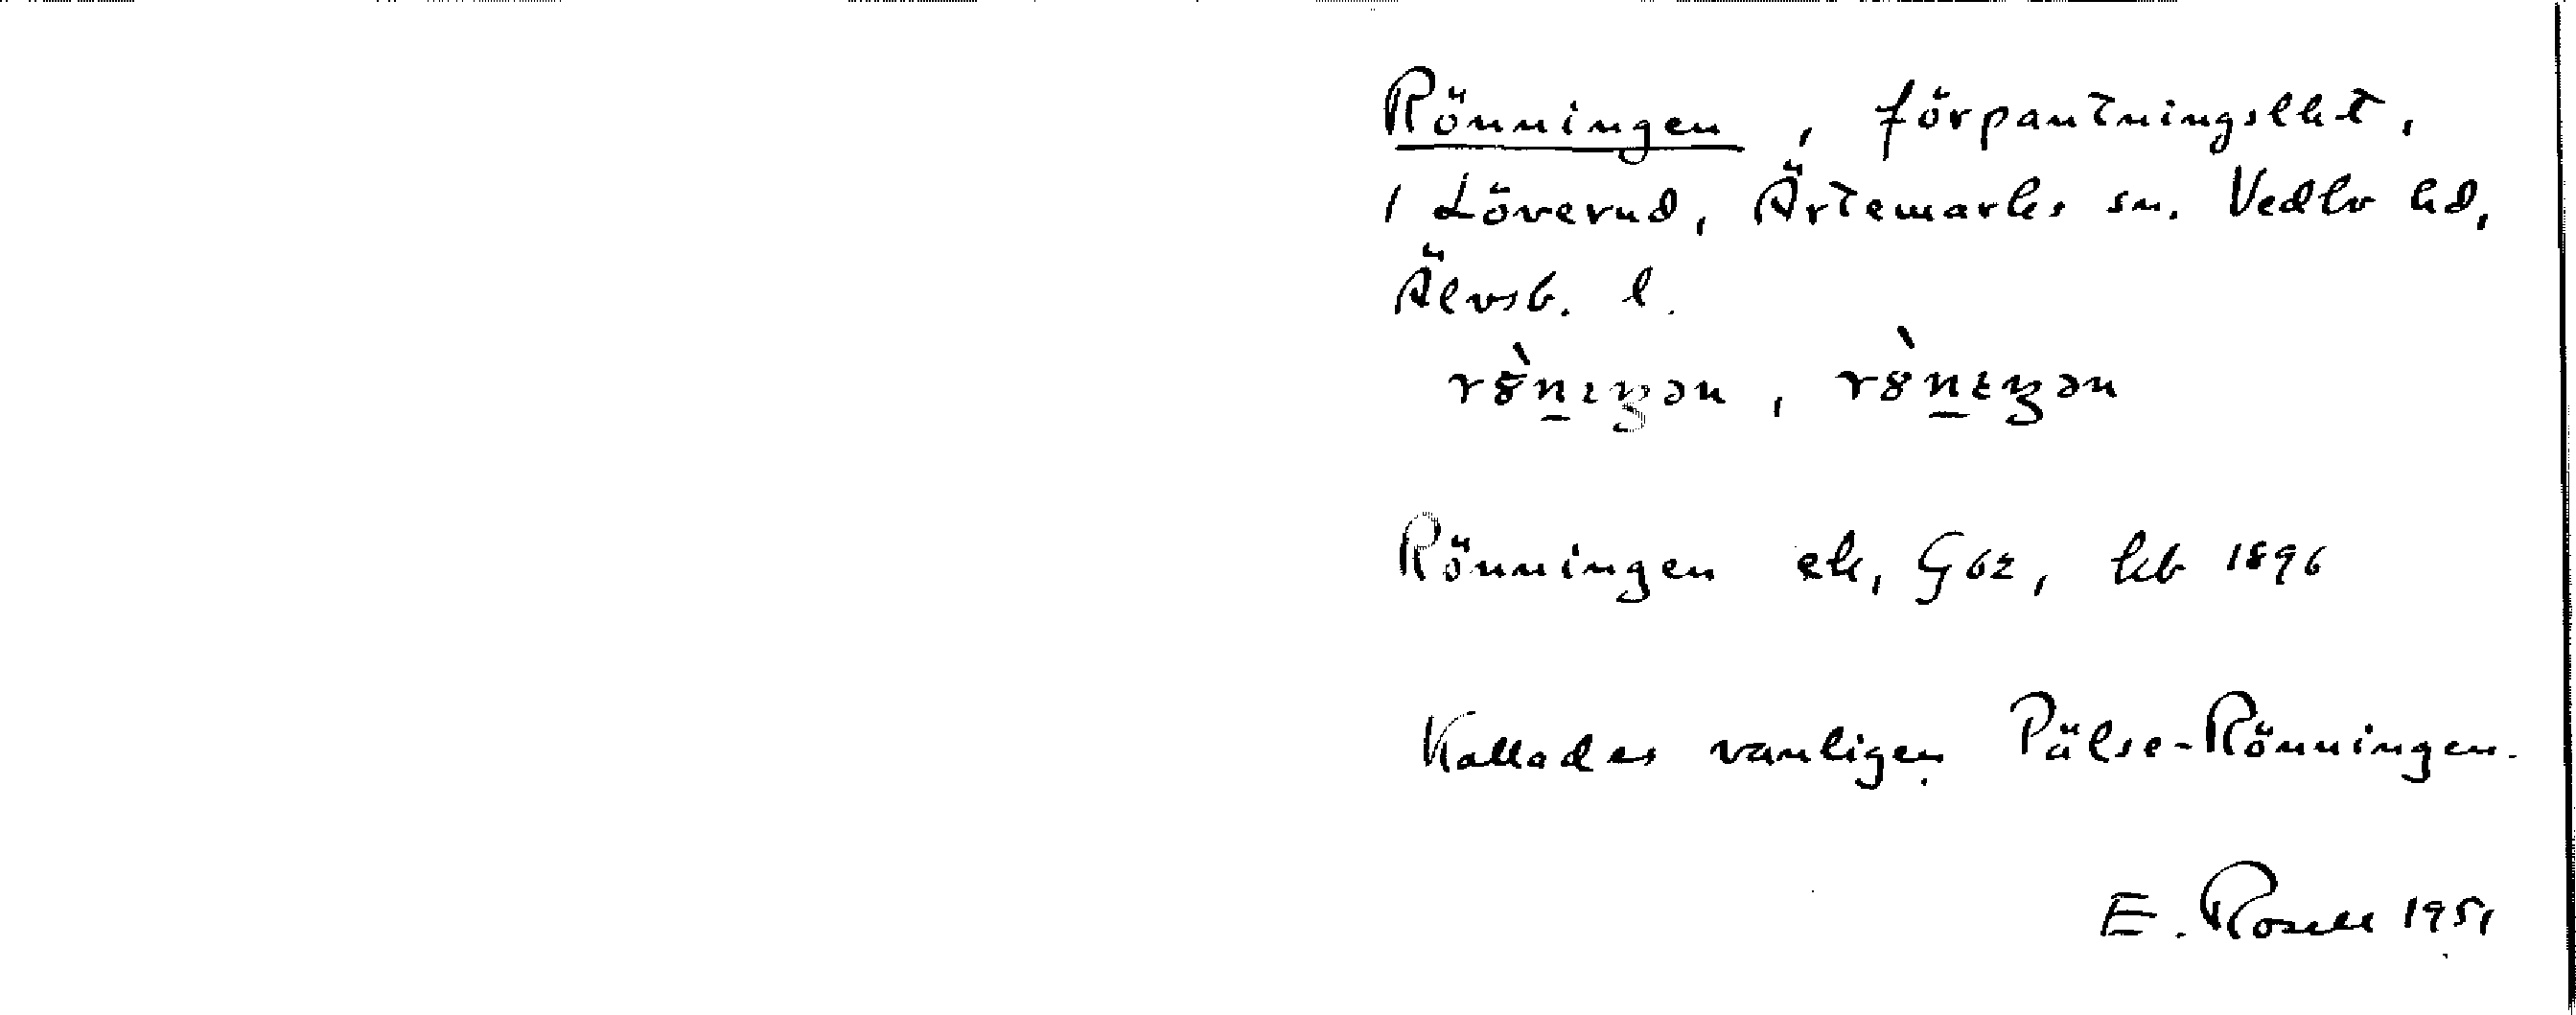 Rönningen, förpantningslht,
1 Löverud, Ärtemarks sn. Vedbo hd,
Älvsb. l.
Rönningen ek, G 62, kb 1896
Kallades vanligen Pälse-Rönningen.
E. Rosell 1951